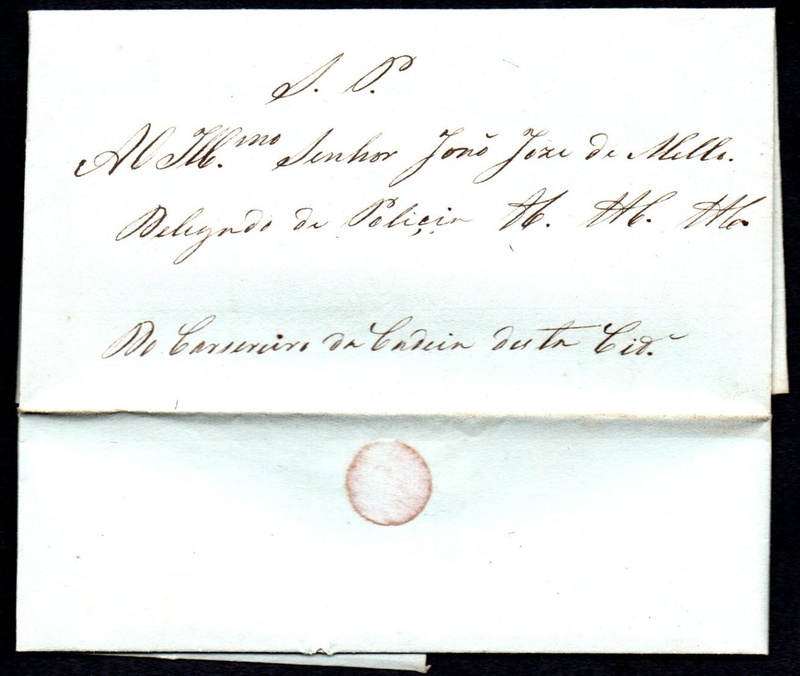 S. P.
Ao Ill.mo Senhor João Joze de Mello.
Delegado de Policia
Do Carsereiro da Cadeia desta Cid.e